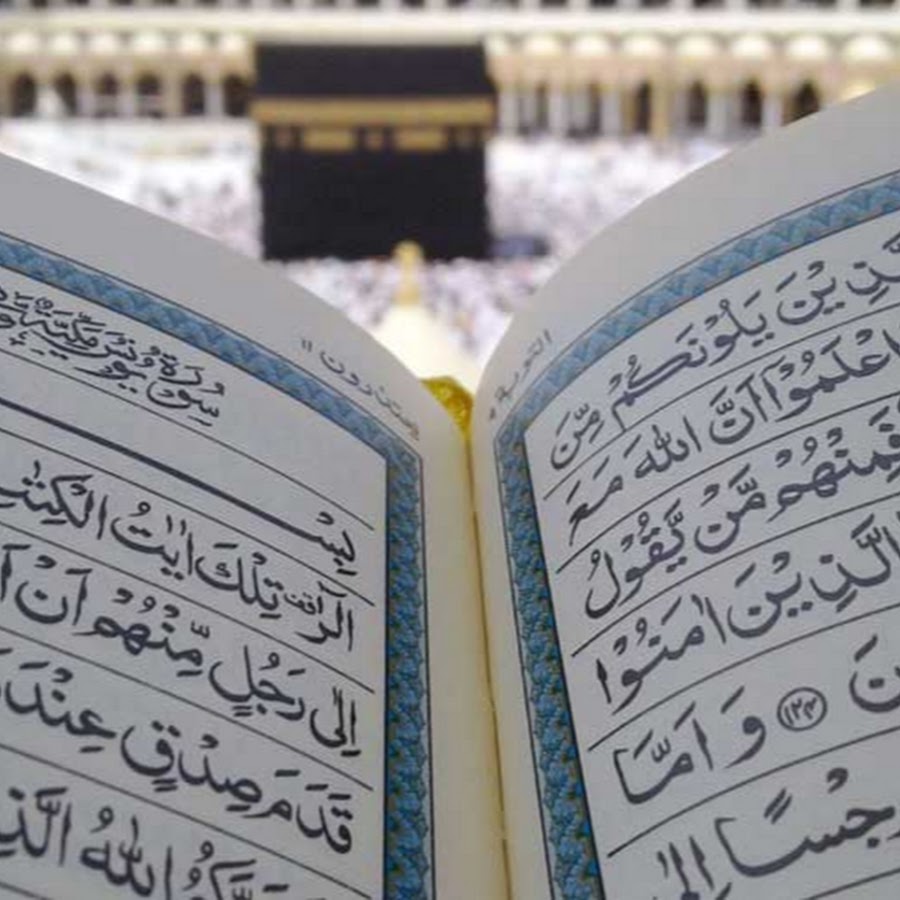 التوبة ٩
الَّذِيْنَ يَلُوْنَكُمْ مِّنَ
اعْلَمُوْۤا اَنَّ اللّٰهَ مَعَ
فَمِنْهُمْ مَّنْ يَّقُوْلُ
الَّذِيْنَ اٰمَنُوْا
نَ ﴿١٢٤﴾ وَاَمَّا
رِجْسًا اِلٰى
يعتذرون ١١
سُوْرَةُ يُوْنُسَ مَكِّيَّةٌ
بِسْـ
الٓرٰ تِلْكَ اٰيٰتُ الْكِتٰبِ
اِلٰى رَجُلٍ مِّنْهُمْ اَنْ
قَدَمَ صِدْقٍ عِنْدَ
رَبَّكُمُ اللّٰهُ الَّذِ